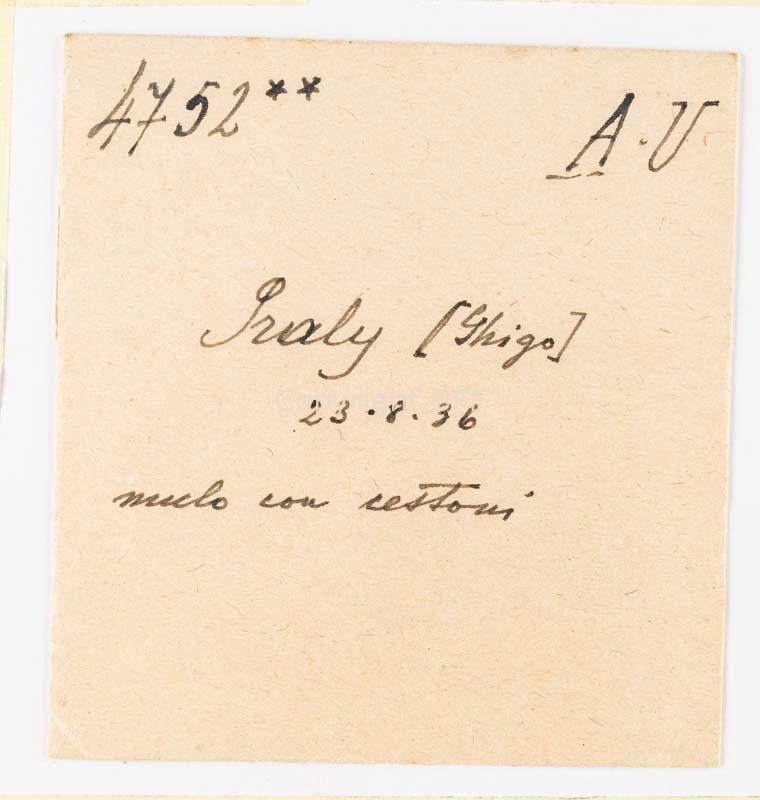 4752** A.V
Praly [Ghigo]
23.8.36
mulo con cestoni